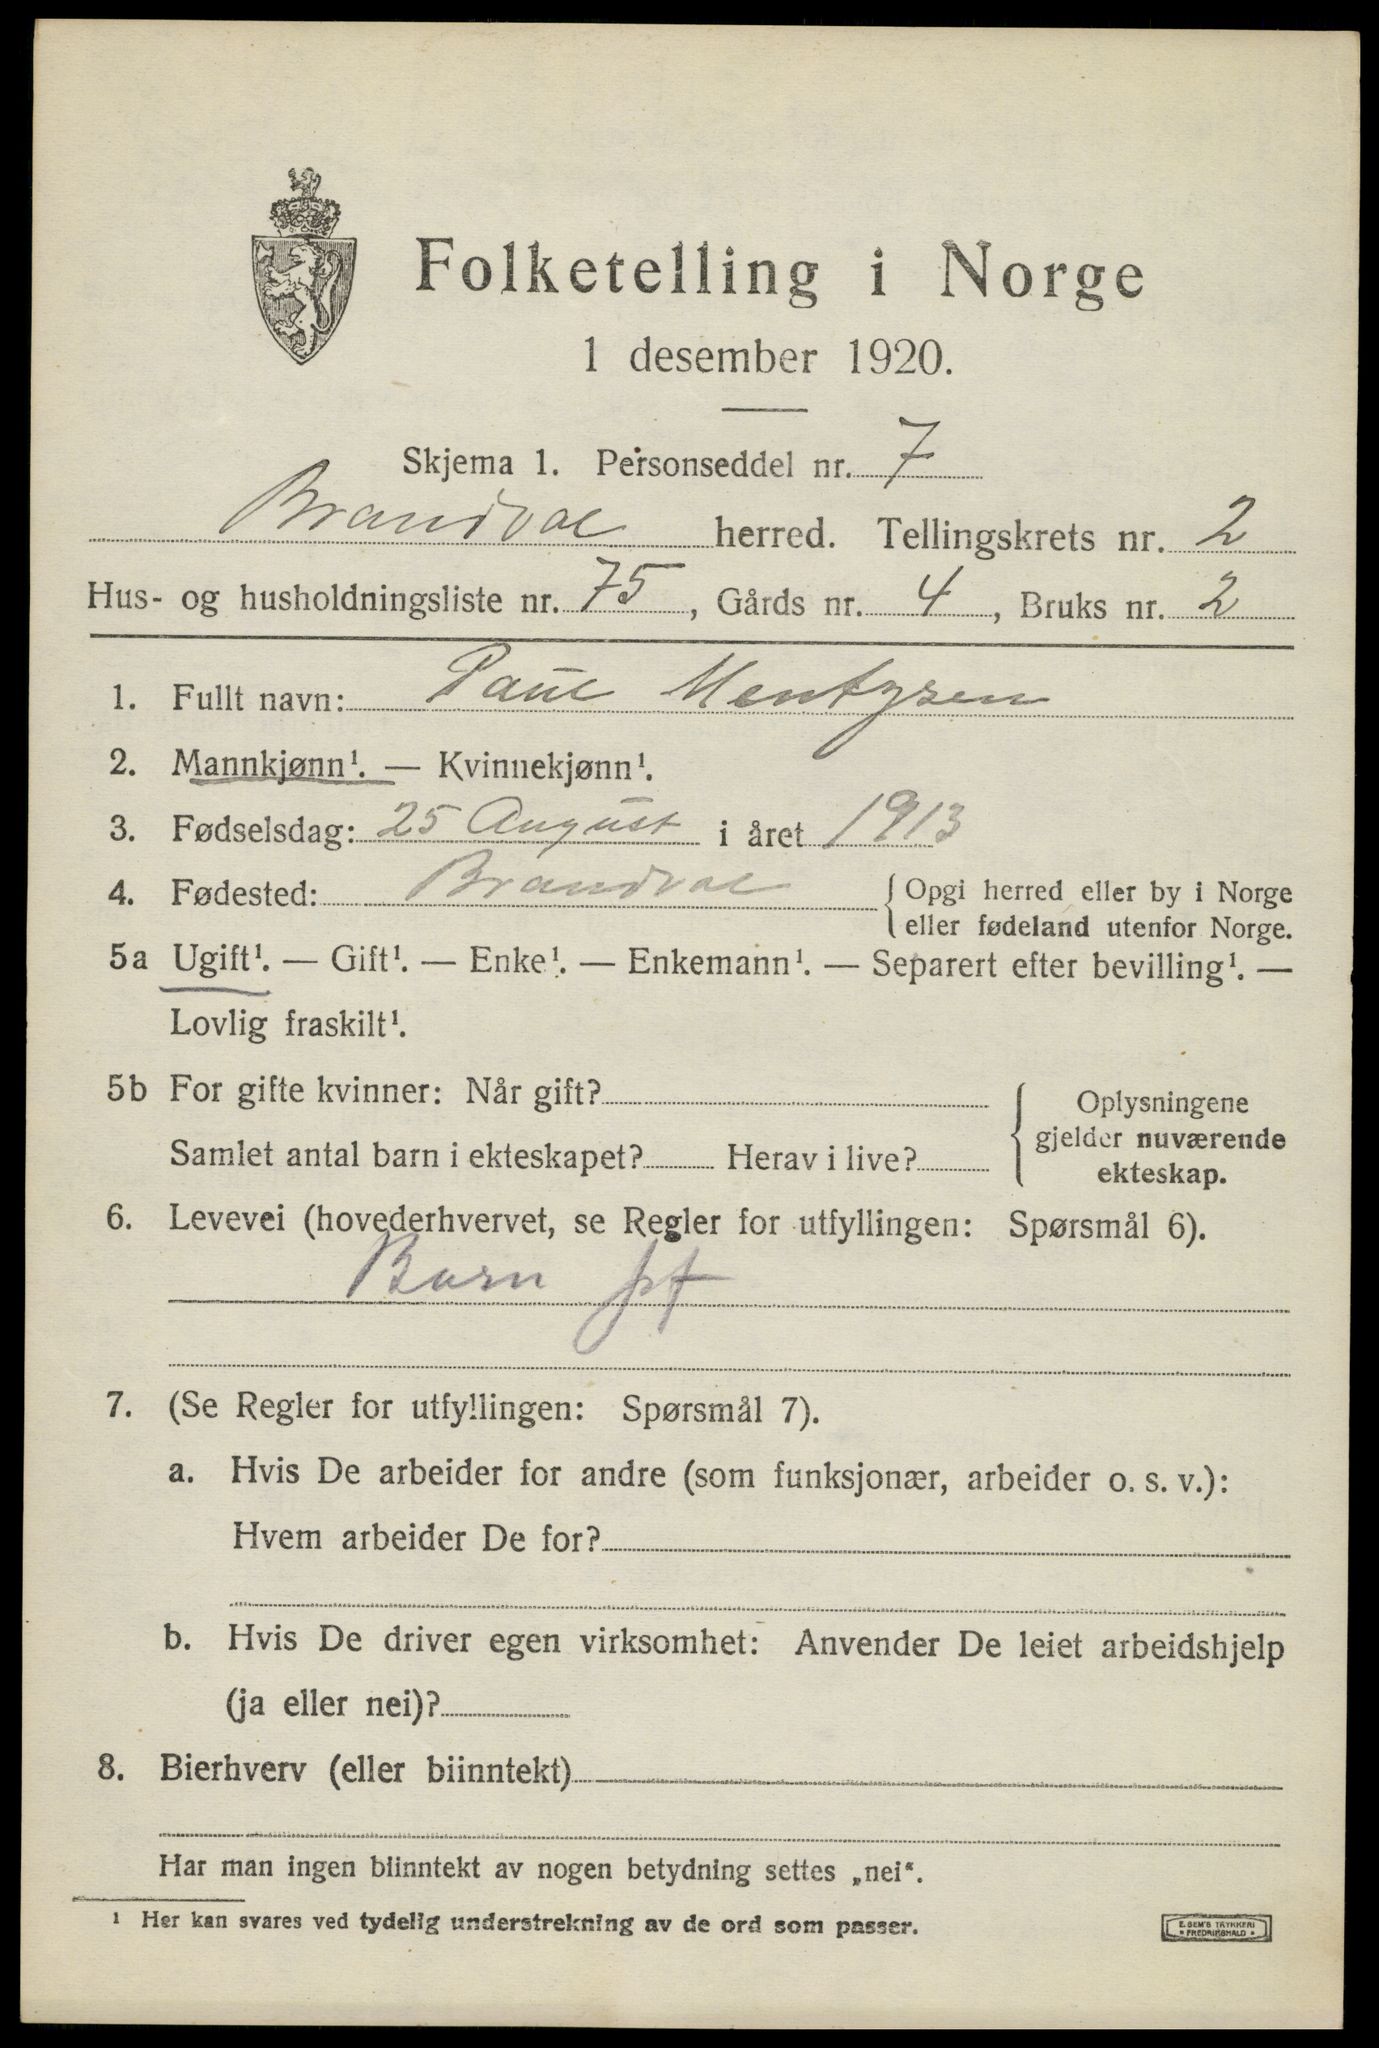 Folketelling i Norge
1 desember 1920.
Skjema 1. Personseddel nr. 7
Brandval herred. Tellingskrets nr. 2
Hus- og husholdningsliste nr. 75, Gårds nr. 4, Bruks nr. 2
1. Fullt navn: Paul Mentzsen
2. Mannkjønn¹. — Kvinnekjønn¹.
3. Fødselsdag: 25 August i året 1913
4. Fødested: Brandval {Opgi herred eller by i Norge
eller fødeland utenfor Norge.
5a Ugift¹. — Gift¹. — Enke¹. — Enkemann¹. — Separert efter bevilling¹. —
Lovlig fraskilt¹.
5b For gifte kvinner: Når gift?
Samlet antal barn i ekteskapet? Herav i live?
Oplysningene
gjelder nuværende
ekteskap.
6. Levevei (hovederhvervet, se Regler for utfyllingen: Spørsmål 6).
Barn
7. (Se Regler for utfyllingen: Spørsmål 7).
a. Hvis De arbeider for andre (som funksjonær, arbeider o. s. v.):
Hvem arbeider De for?
b. Hvis De driver egen virksomhet: Anvender De leiet arbeidshjelp
(ja eller nei)?
8. Bierhverv (eller biinntekt)
Har man ingen biinntekt av nogen betydning settes „nei“.
¹ Her kan svares ved tydelig understrekning av de ord som passer.
E. SEM'S TRYKKERI
• FREDRIKSHALD •